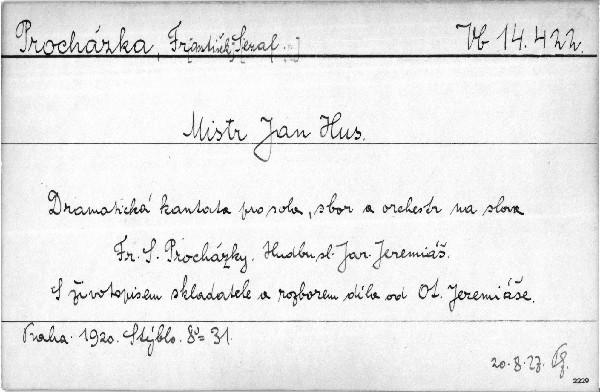 Procházka, Fr[antišek] Seraf. Vb 14.422.
Mistr Jan Hus.
Dramatická kantata pro sola, sbor a orchestr na slova
Fr. S. Procházky. Hudbu sl. Jar. Jeremiáš.
S životopisem skladatele a rozborem díla od Ot. Jeremiáše.
Praha. 1920. Stýblo. 8º= 31.
20.8.27.
2229